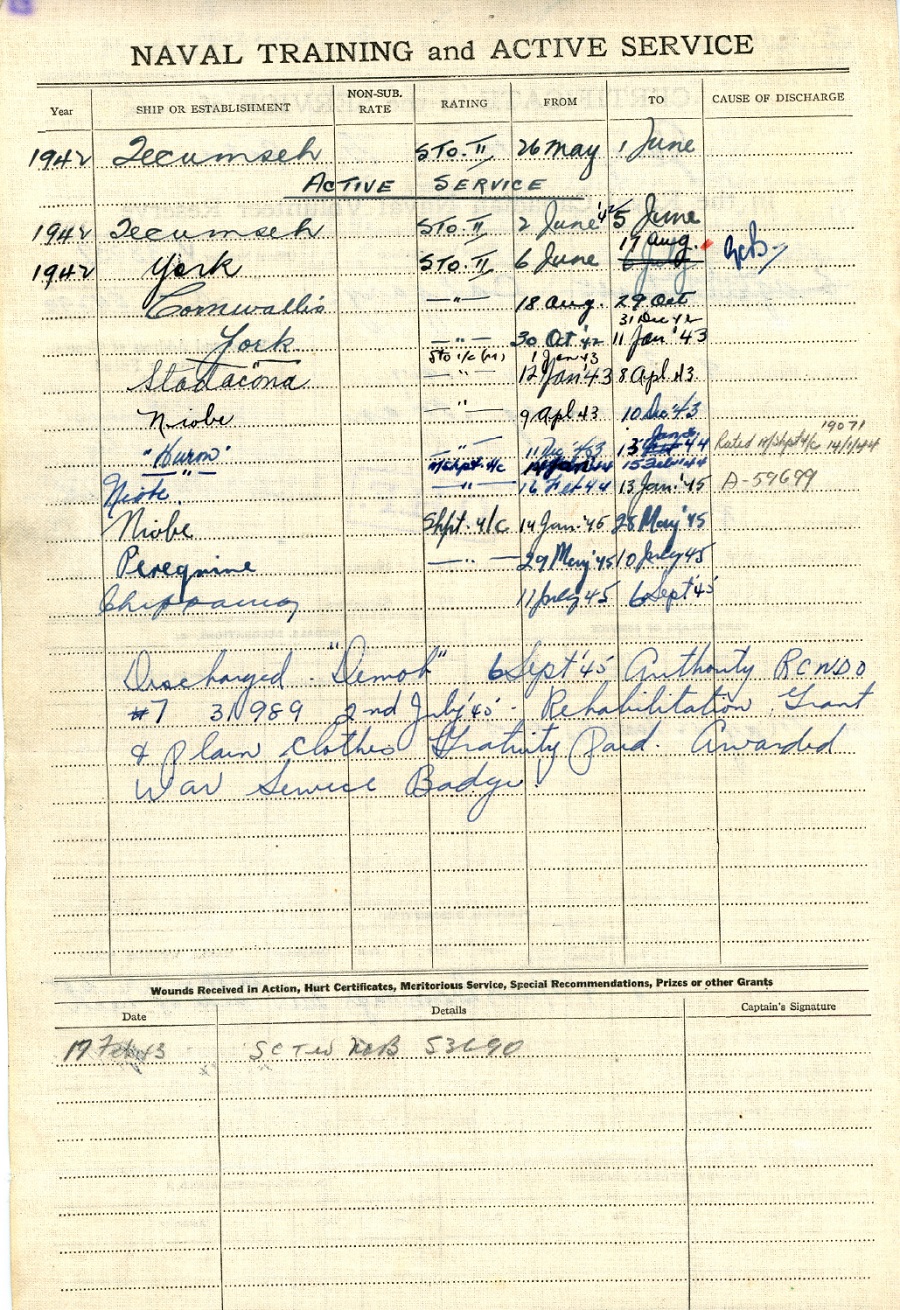 NAVAL TRAINING and ACTIVE SERVICE
Year SHIP OR ESTABLISHMENT NON-SUB. RATE RATING FROM TO CAUSE OF DISCHARGE
1942 Tecumseh STO. II 26 May 1 June
ACTIVE SERVICE
1942 Tecumseh STO. II 2 June '42 5 June
17 Aug.
1942 York STO. II 6 June
Cornwallis —"— 18 Aug. 29 Oct
31 Dec 42
York —"— 30 Oct '42 11 Jan '43
Sto 1/c (M) 1 Jan 43
Stadacona —"— 12 Jan '43 8 Apl 43
Niobe —"— 9 Apl 43 10 Dec '43
"Huron" —"— 11 Dec '43 13 Jan 44 Rated M/Shpt 4/c 14/1/44
19071
—"— M/Shpt. 4/c 14 Jan 44 15 Feb 44
Niobe —"— 16 Feb 44 13 Jan. '45 A-59699
Niobe Shpt. 4/c 14 Jan. '45 28 May '45
Peregrine —"— 29 May '45 10 July 45
Chippawa 11 July 45 6 Sept '45
Discharged "Demob" 6 Sept '45 Authority RCNDO
#7 31989 2nd July '45. Rehabilitation Grant
& plain clothes Gratuity Paid. Awarded
War Service Badge.
Wounds Received in Action, Hurt Certificates, Meritorious Service, Special Recommendations, Prizes or other Grants
Date Details Captain's Signature
17 Feb 43 53690